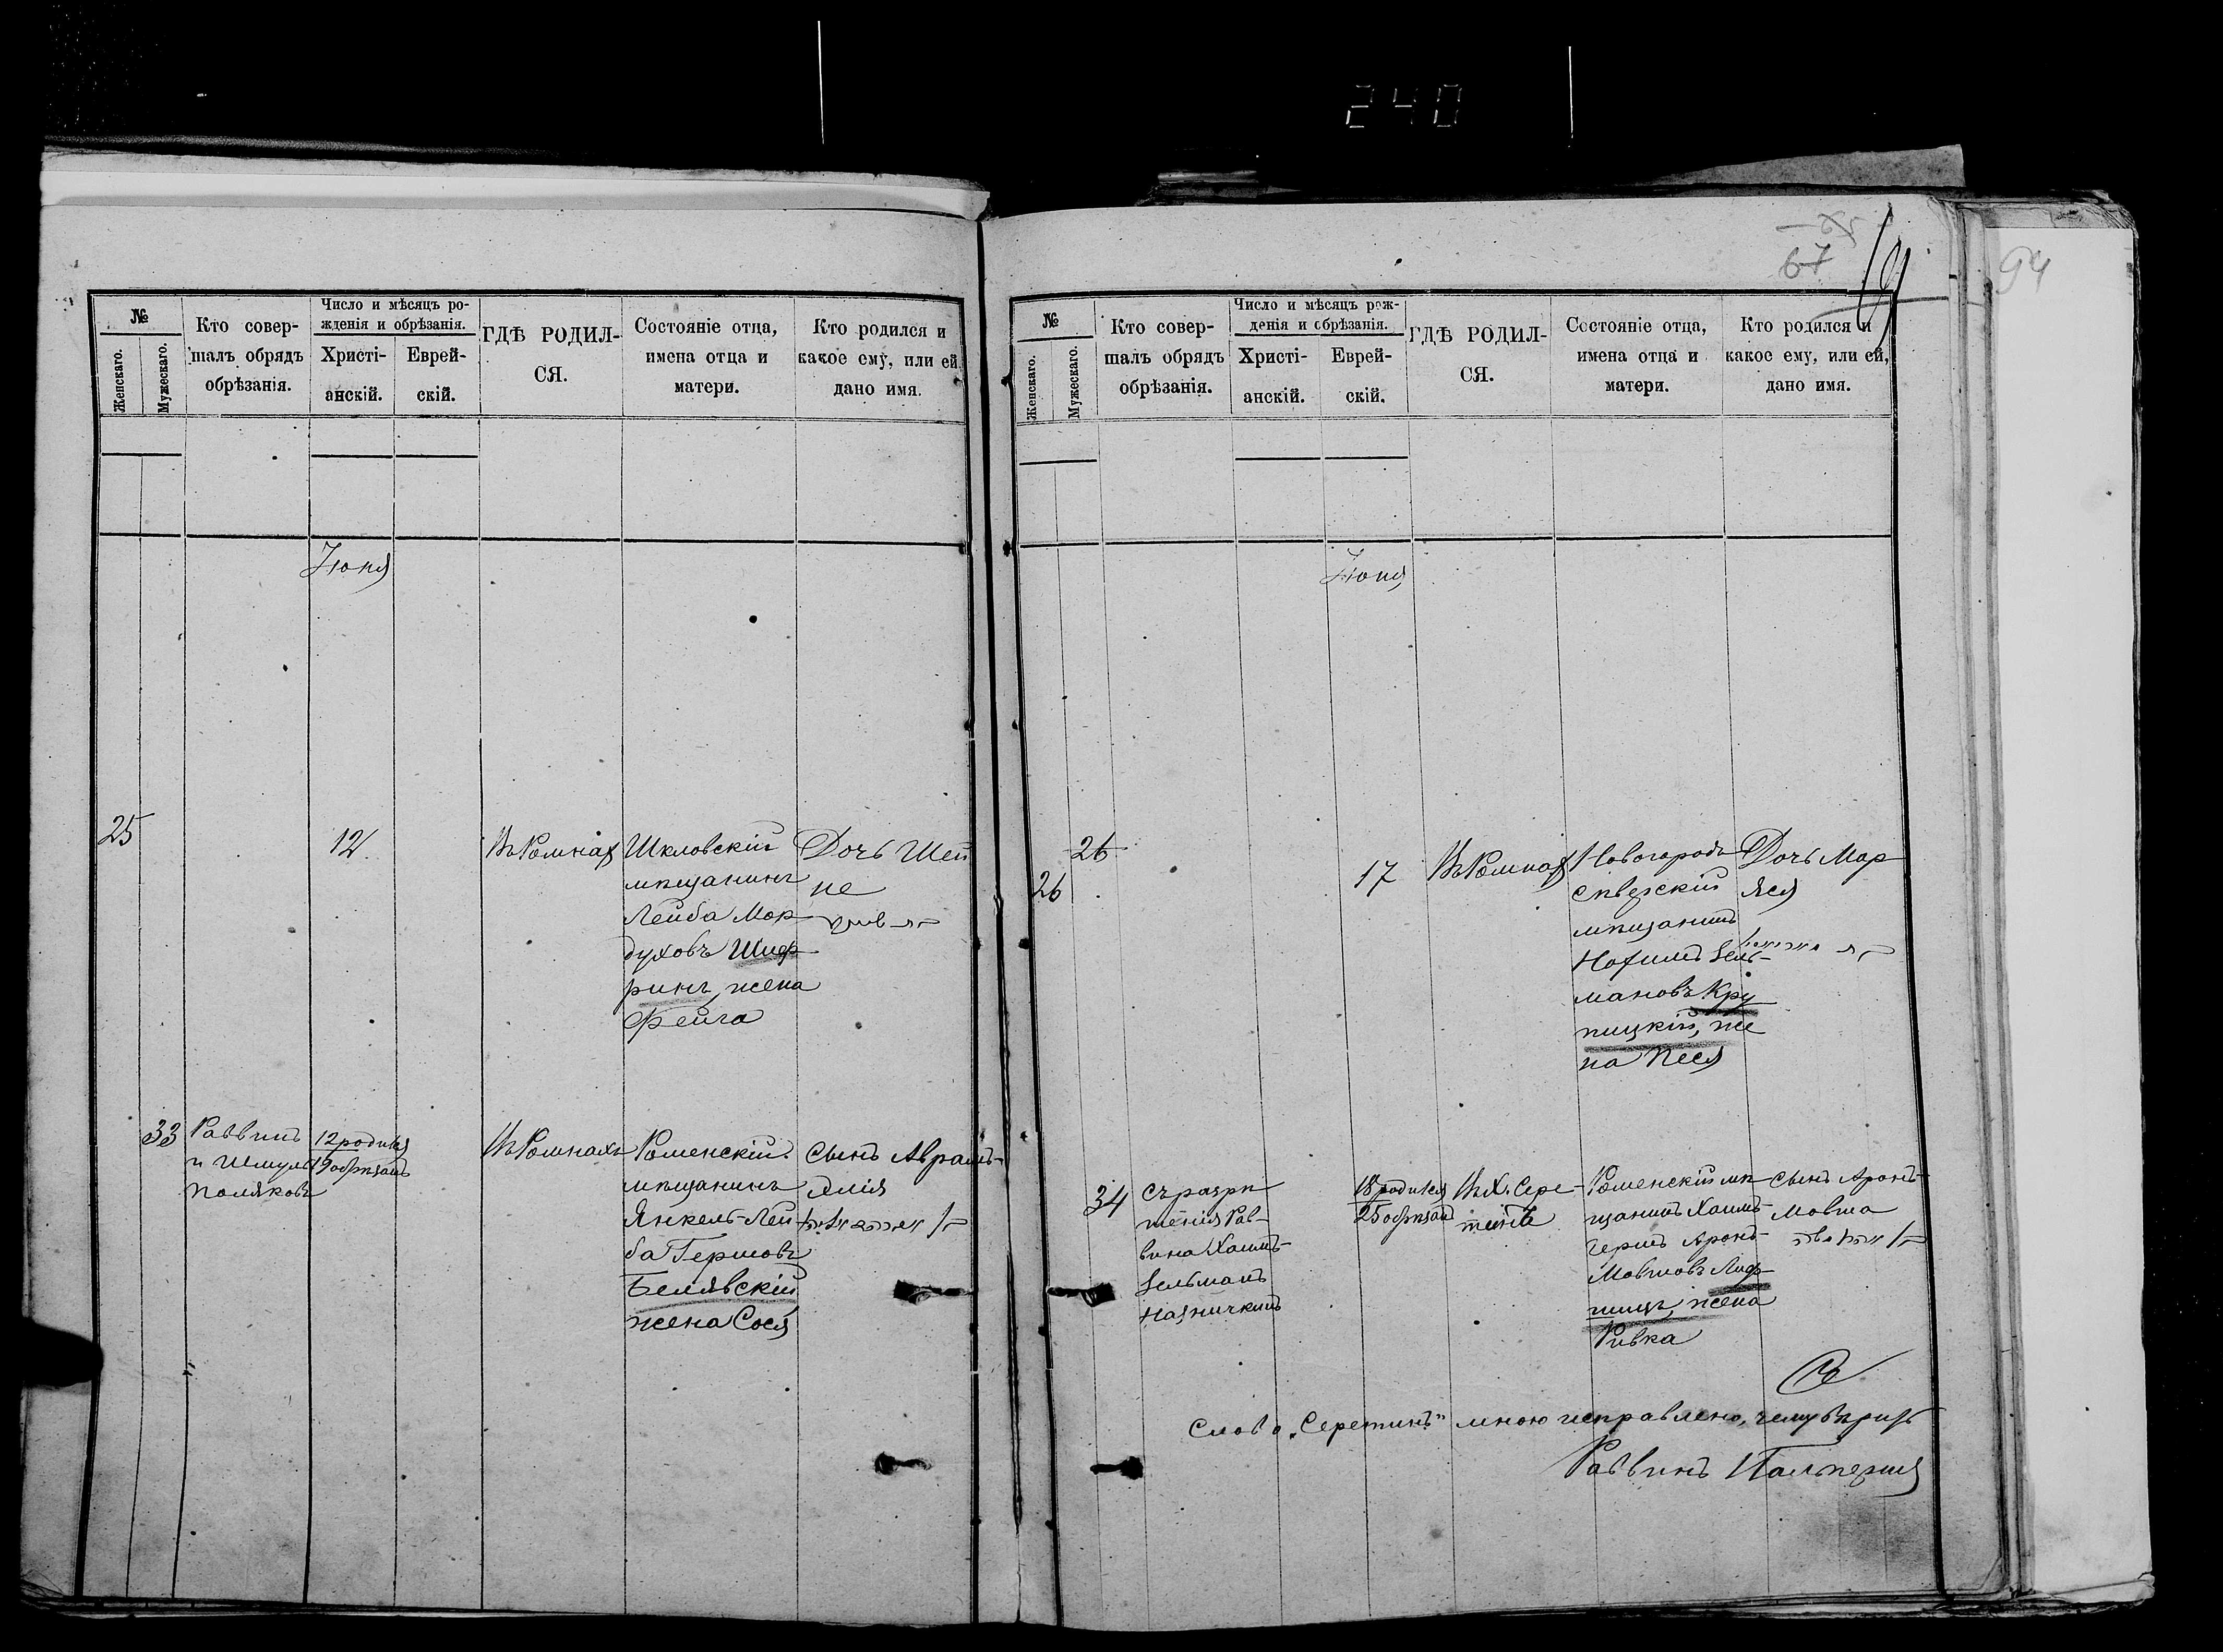 240
67
94
№
Женскаго.
Мужескаго.
Кто совер-
шалъ обрядъ
обрѣзанія.
Число и мѣсяцъ ро-
жденія и обрѣзанія.
Христі-
анскій.
Еврей-
скій.
ГДѢ РОДИЛ-
СЯ.
Состояніе отца,
имена отца и
матери.
Кто родился и
какое ему, или ей
дано имя.
Іюня
25
12
Въ Ромнах
Шкловскій
мѣщанинъ
Лейба Мор
духовъ Шиф
ринъ, жена
Фейга
Дочь Шей
не
33
Раввинъ
и Шмуль
Поляковъ
12 родился
19 обрѣзанъ
Въ Ромнахъ
Роменскій
мѣщанинъ
Янкель-Лей
ба Гершовъ
Белявскій
жена Сося
Сынъ Аврамъ-
Элія
№
Женскаго.
Мужескаго.
Кто совер-
шалъ обрядъ
обрѣзанія.
Число и мѣсяцъ рож-
денія и обрѣзанія.
Христі-
анскій.
Еврей-
скій.
ГДѢ РОДИЛ-
СЯ.
Состояніе отца,
имена отца и
матери.
Кто родился и
какое ему, или ей,
дано имя.
Іюня
26
26
17
Въ Ромнах
Новогородъ
Сѣверскій
мѣщанинъ
Нохимъ Зель-
мановъ Кру
пицкій, же
на Песя
Дочь Мар
яся
34
Съ разрѣ
шенія Рав-
вина Хаимъ-
Зельманъ
18 родился
25 обрѣзанъ
Въ Х. Сере-
Роменскій мѣ
щанинъ Хаимъ-
Гершъ Аронъ-
Мовшовъ Лиф
шицъ, жена
Ривка
Сынъ Аронъ-
Мовша
Слово „Сережинъ" мною исправлено,
Раввинъ Гальперинъ